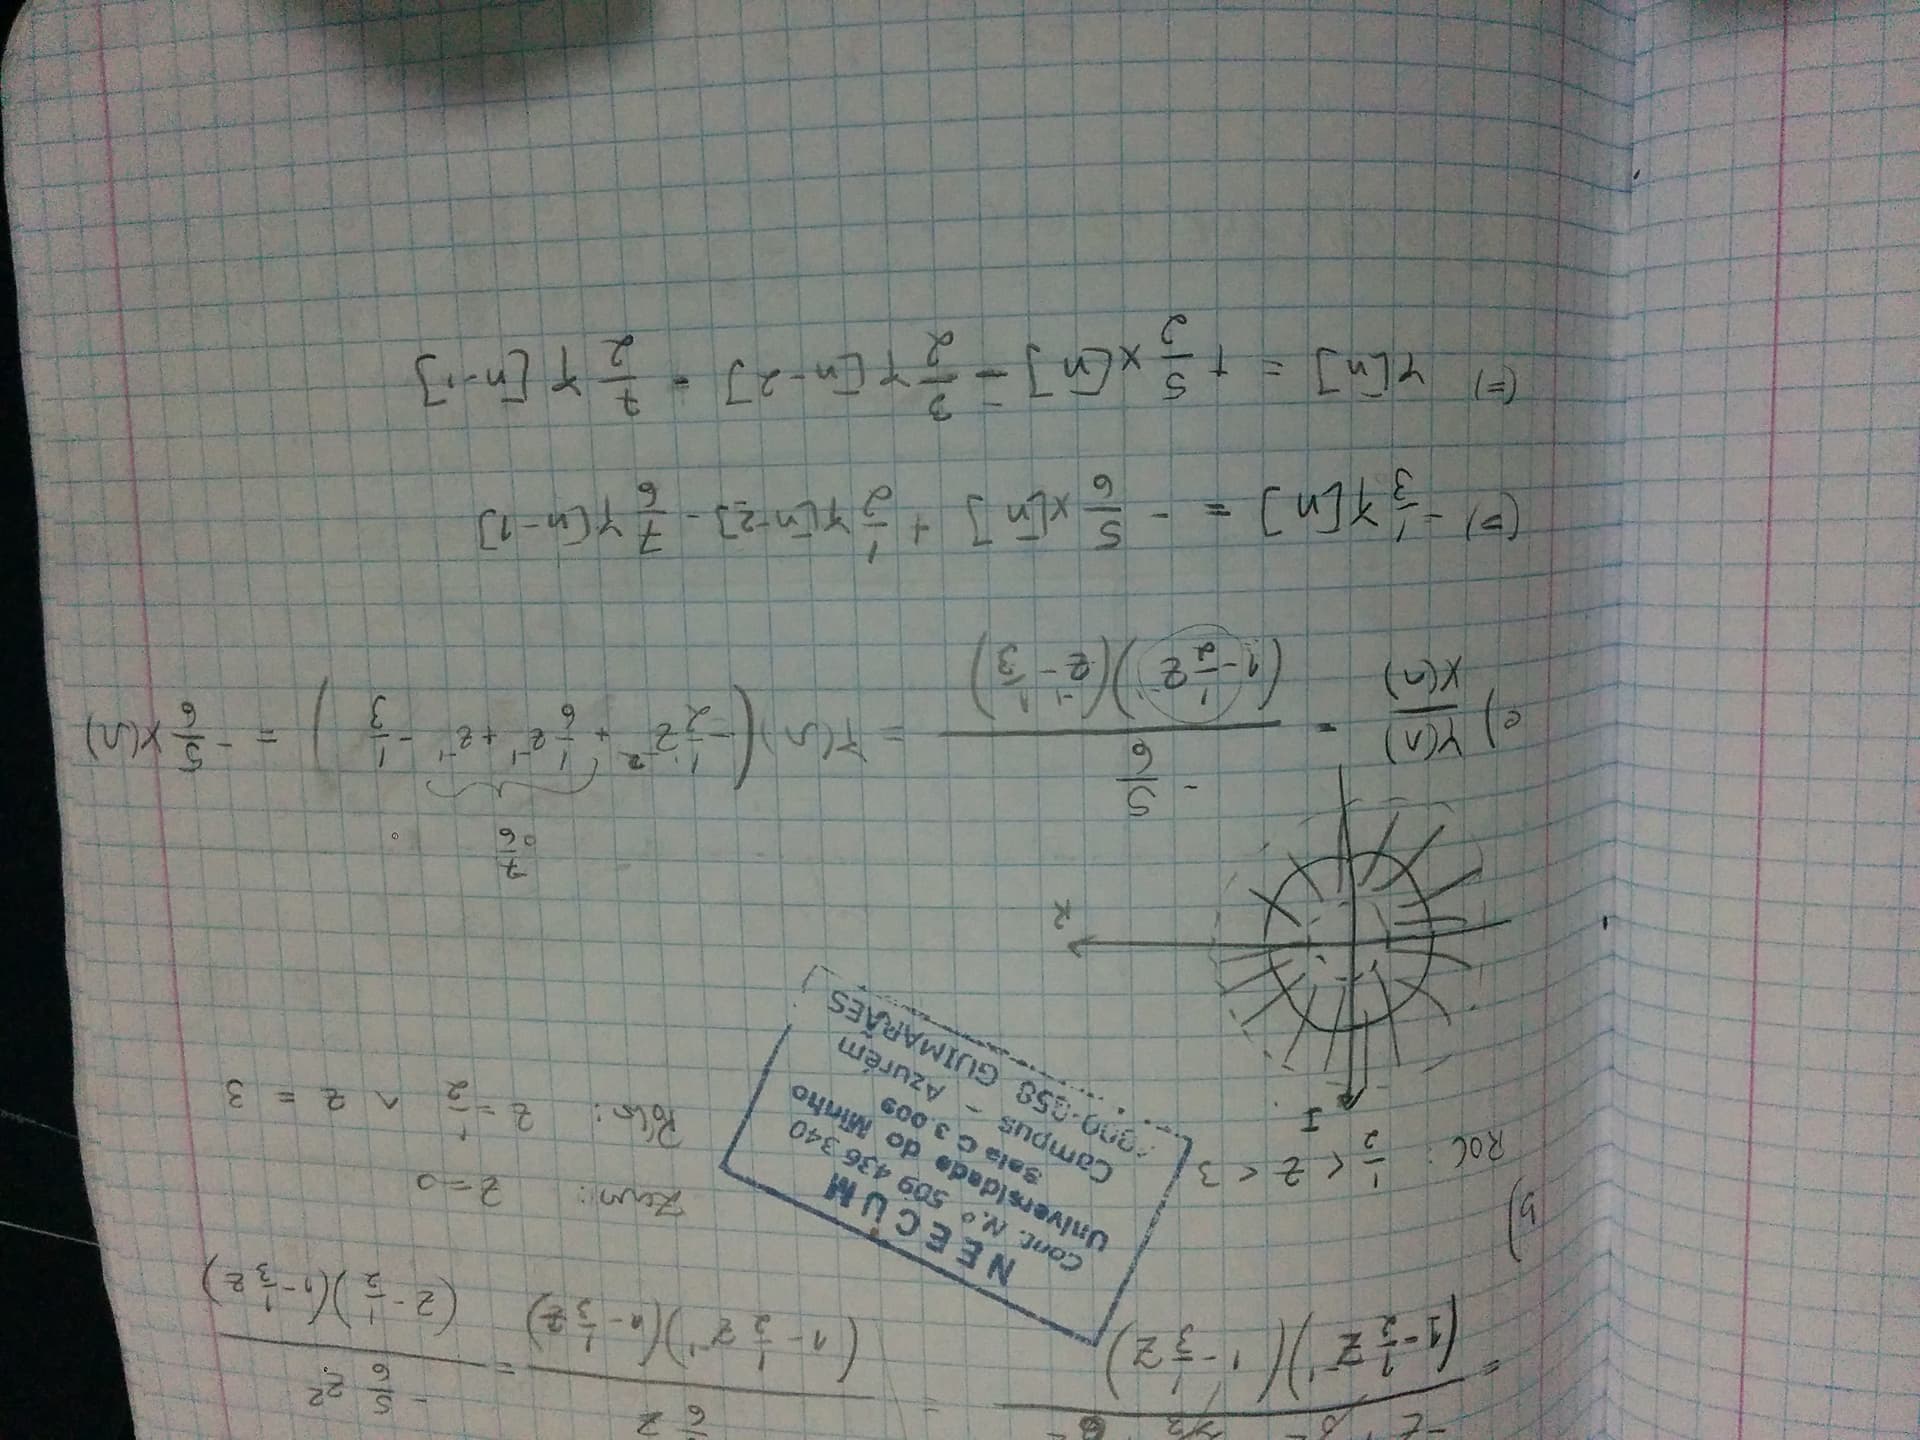 = / (1 - 1/2 z^-1)(1 - 1/3 z) = 6 z / (1 - 1/2 z^-1)(1 - 1/3 z) = - 5/6 z^2 / (z - 1/2)(1 - 1/3 z)
b)
ROC: 1/2 < z < 3
NEECUM
Cont. N.º 509 436 340
Universidade do Minho
Sala C 3.009
Campus - Azurém
GUIMARÃES
Zeros: z = 0
Pólos: z = 1/2 ∧ z = 3
I
R
7/6
c) Y(n)/X(n) = - 5/6 / (1 - 1/2 z^-1)(z^-1 - 1/3) = Y(n) (- 1/2 z^-2 + 1/6 z^-1 + z^-1 - 1/3) = - 5/6 X(n)
(=) - 1/3 Y[n] = - 5/6 x[n] + 1/2 Y[n-2] - 7/6 Y[n-1]
(=) Y[n] = + 5/2 x[n] - 3/2 Y[n-2] = 7/2 Y[n-1]